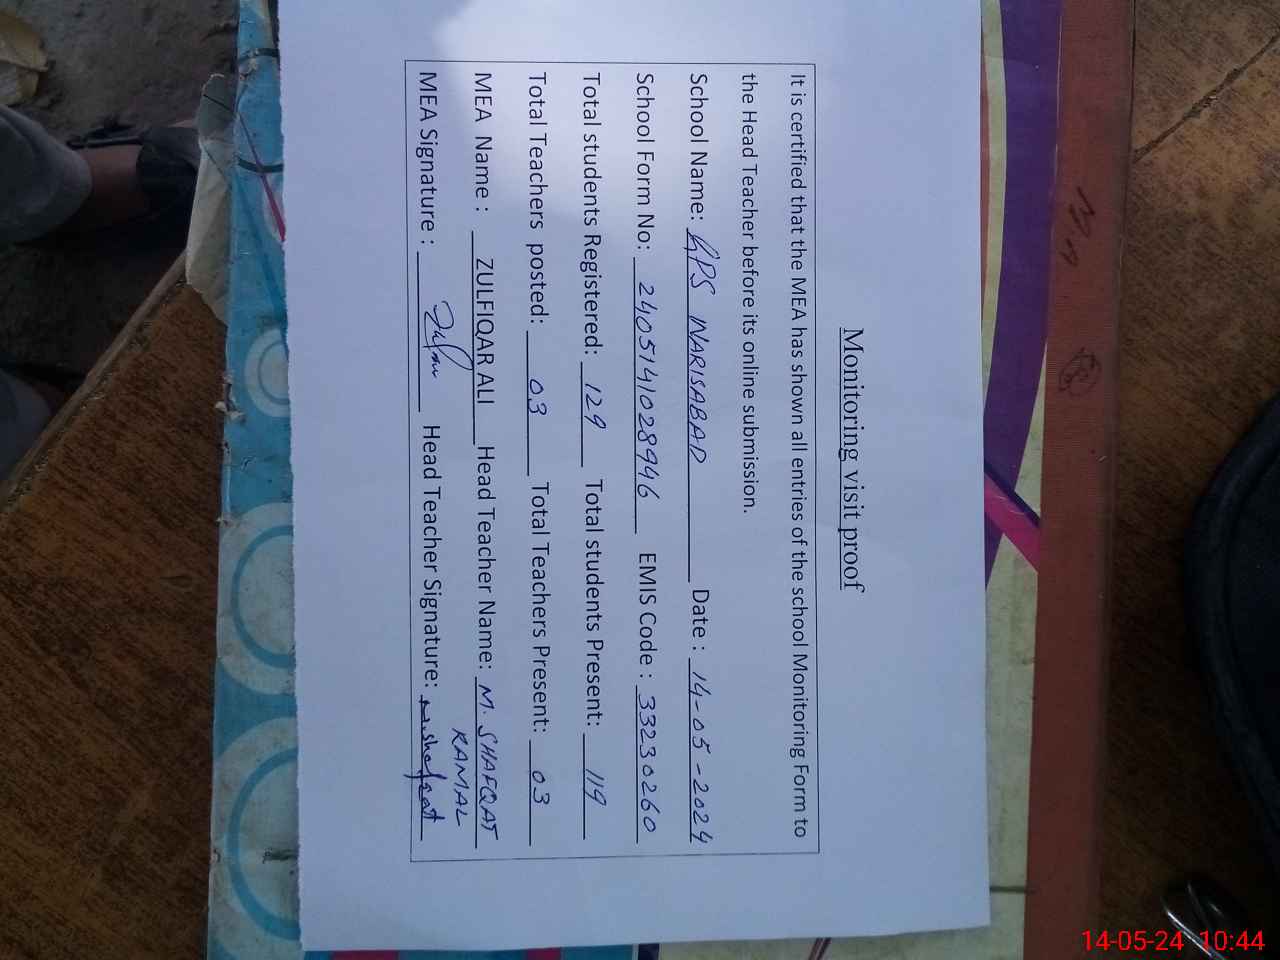 Monitoring visit proof
It is certified that the MEA has shown all entries of the school Monitoring Form to
the Head Teacher before its online submission.
School Name: GPS NARISABAD Date : 14-05-2024
School Form No: 2405141028946 EMIS Code : 33230260
Total students Registered: 129 Total students Present: 119
Total Teachers posted: 03 Total Teachers Present: 03
MEA Name : ZULFIQAR ALI Head Teacher Name: M. SHAFQAT
KAMAL
MEA Signature : Head Teacher Signature: M.shafqat
14-05-24 10:44